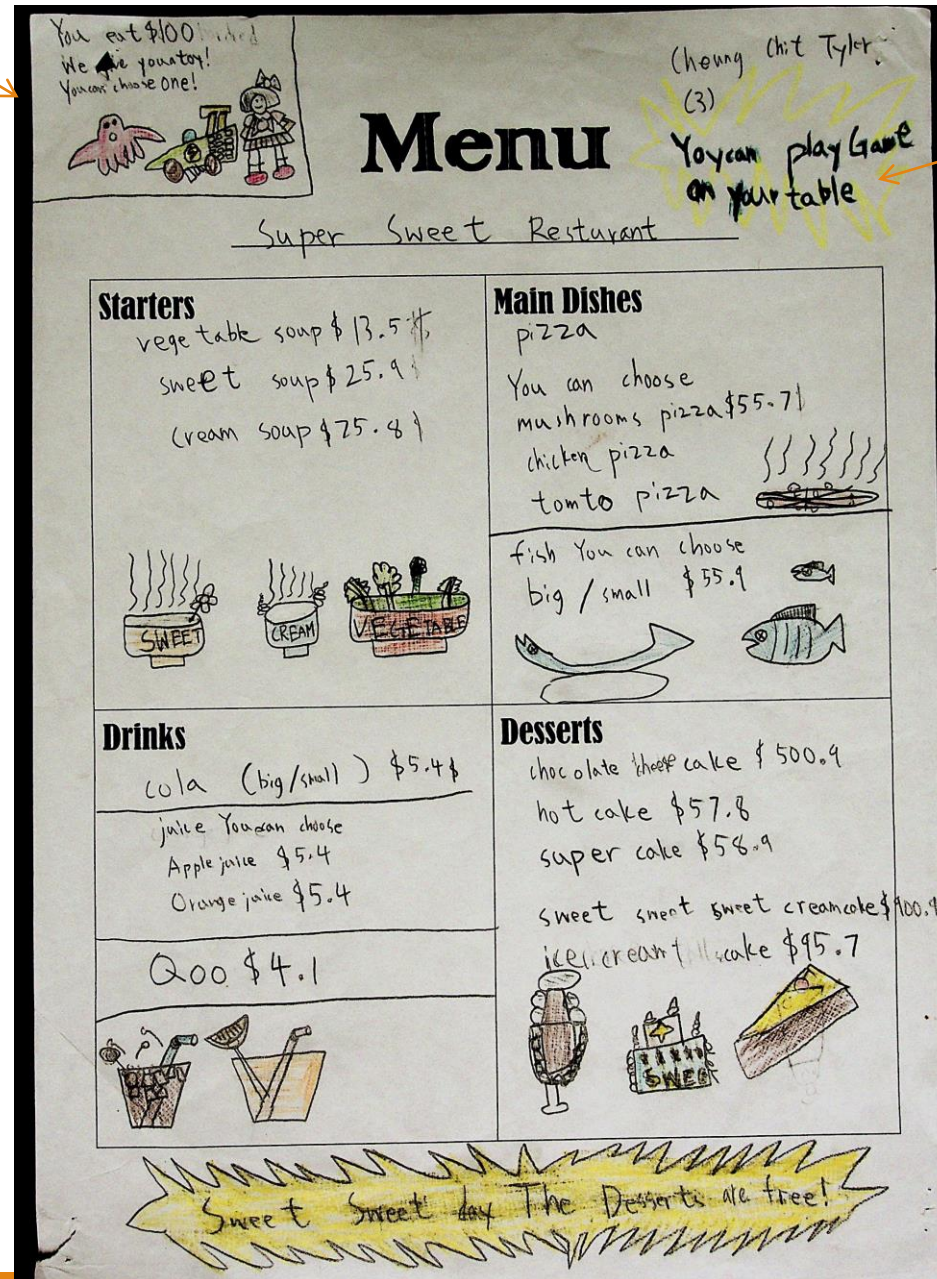 You eat $100
We give you a toy!
You can choose one!
Cheung Chit Tyler
(3)
Menu
Yoycan play Game
on your table
Super Sweet Resturant
Starters
vegetable soup $13.5
sweet soup $25.9
cream soup $25.8
SWEET
CREAM
VEGETABLE
Main Dishes
pizza
You can choose
mushrooms pizza $55.7
chicken pizza
tomto pizza
fish You can choose
big / small $55.9
Drinks
cola (big/small) $5.4$
juice You can choose
Apple juice $5.4
Orange juice $5.4
Qoo $4.1
Desserts
chocolate cake $500.9
hot cake $57.8
super cake $58.9
sweet sweet sweet creamcake
icecream cake $95.7
SWEE
Sweet Sweet day The Desserts are free!